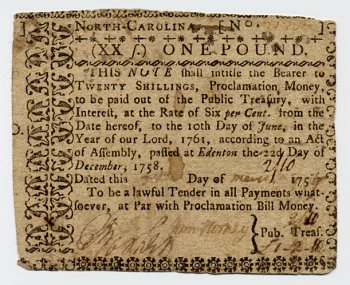 North-Carolina, [No.
(XX s.) ONE POUND.
THIS NOTE shall intitle the Bearer to
Twenty Shillings, Proclamation Money,
to be paid out of the Public Treasury, with
Interest, at the Rate of Six per Cent. from the
Date hereof, to the 10th Day of June, in the
Year of our Lord, 1761, according to an Act
of Assembly, passed at Edenton the 22d Day of
December, 1758.
Dated this Day of 175
To be a lawful Tender in all Payments what-
soever, at Par with Proclamation Bill Money.
Pub. Treas.